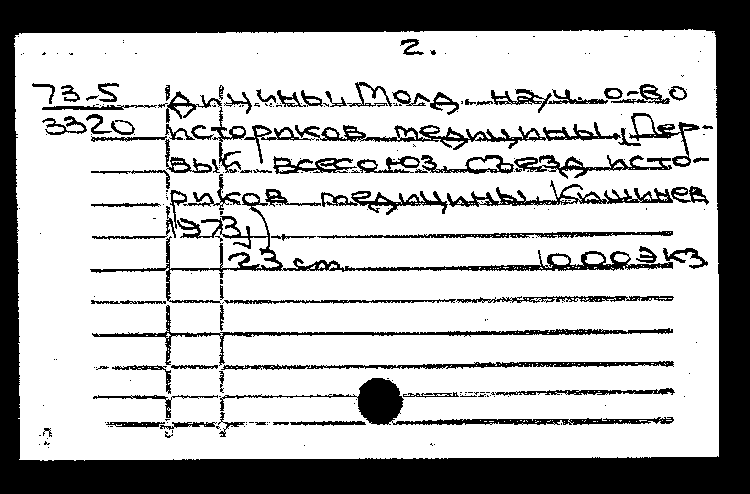 2.
73-5 дицины. Молд. науч. о-во
3320 историков медицины. (Пер-
вый всесоюз. съезд исто-
риков медицины. Кишинев
1973)
23 cm. 1000 экз